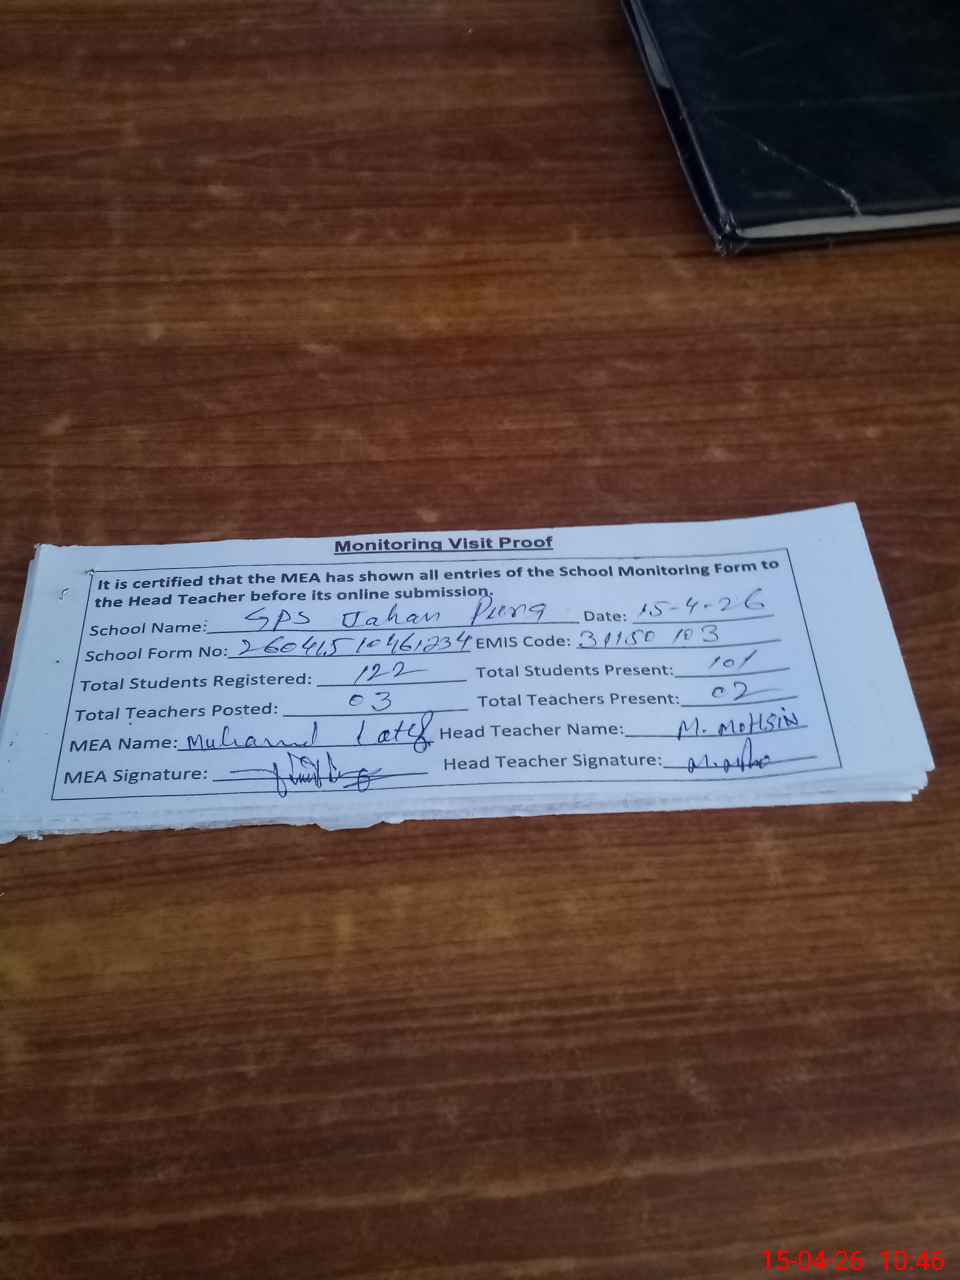 Monitoring Visit Proof
It is certified that the MEA has shown all entries of the School Monitoring Form to
the Head Teacher before its online submission.
School Name: GPS Jahan Pura Date: 15-4-26
School Form No: 26041510461234 EMIS Code: 31150103
Total Students Registered: 122 Total Students Present: 101
Total Teachers Posted: 03 Total Teachers Present: 02
MEA Name: Muhammd Latif Head Teacher Name: M. MOHSiN
MEA Signature: Head Teacher Signature:
15-04-26 10:46